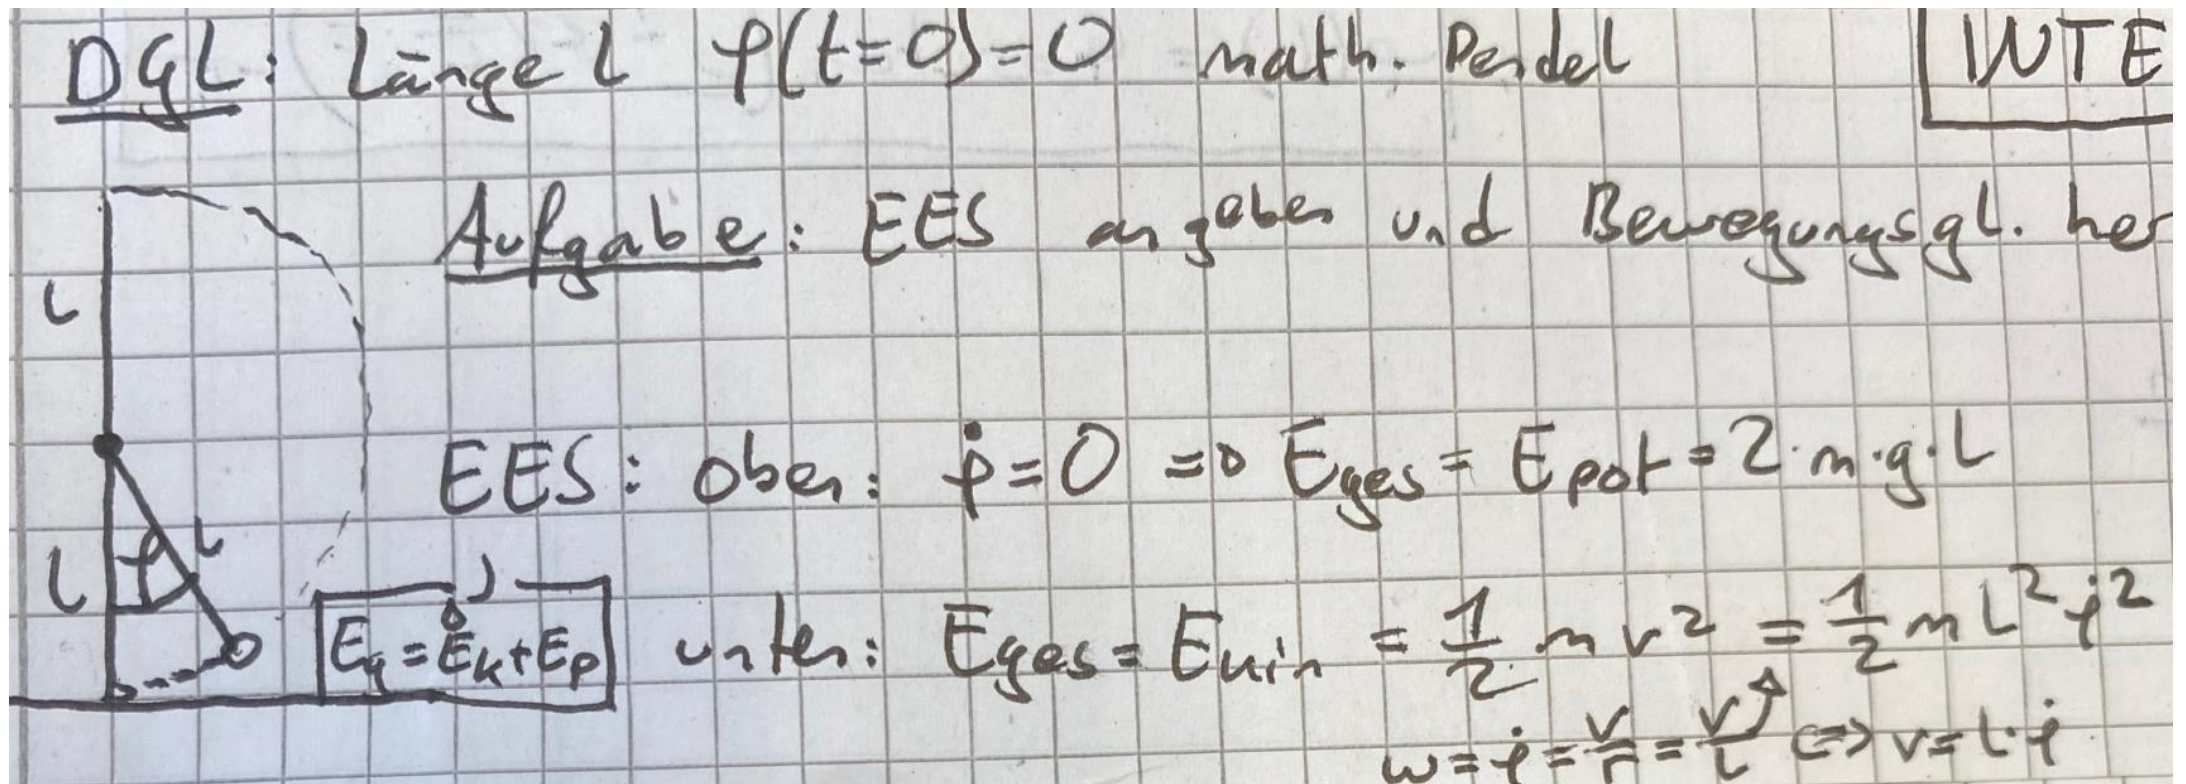 DGL: Länge L φ(t=0)=0 math. Pendel
INTE
Aufgabe: EES angeben und Bewegungsgl. her
L
EES: oben: φ̇=0 => Eges = Epot = 2·m·g·L
L φ L
Eg = Ek+Ep
unten: Eges = Ekin = 1/2 m v² = 1/2 m L² φ̇²
ω = φ̇ = v/r = v/L <=> v = L·φ̇